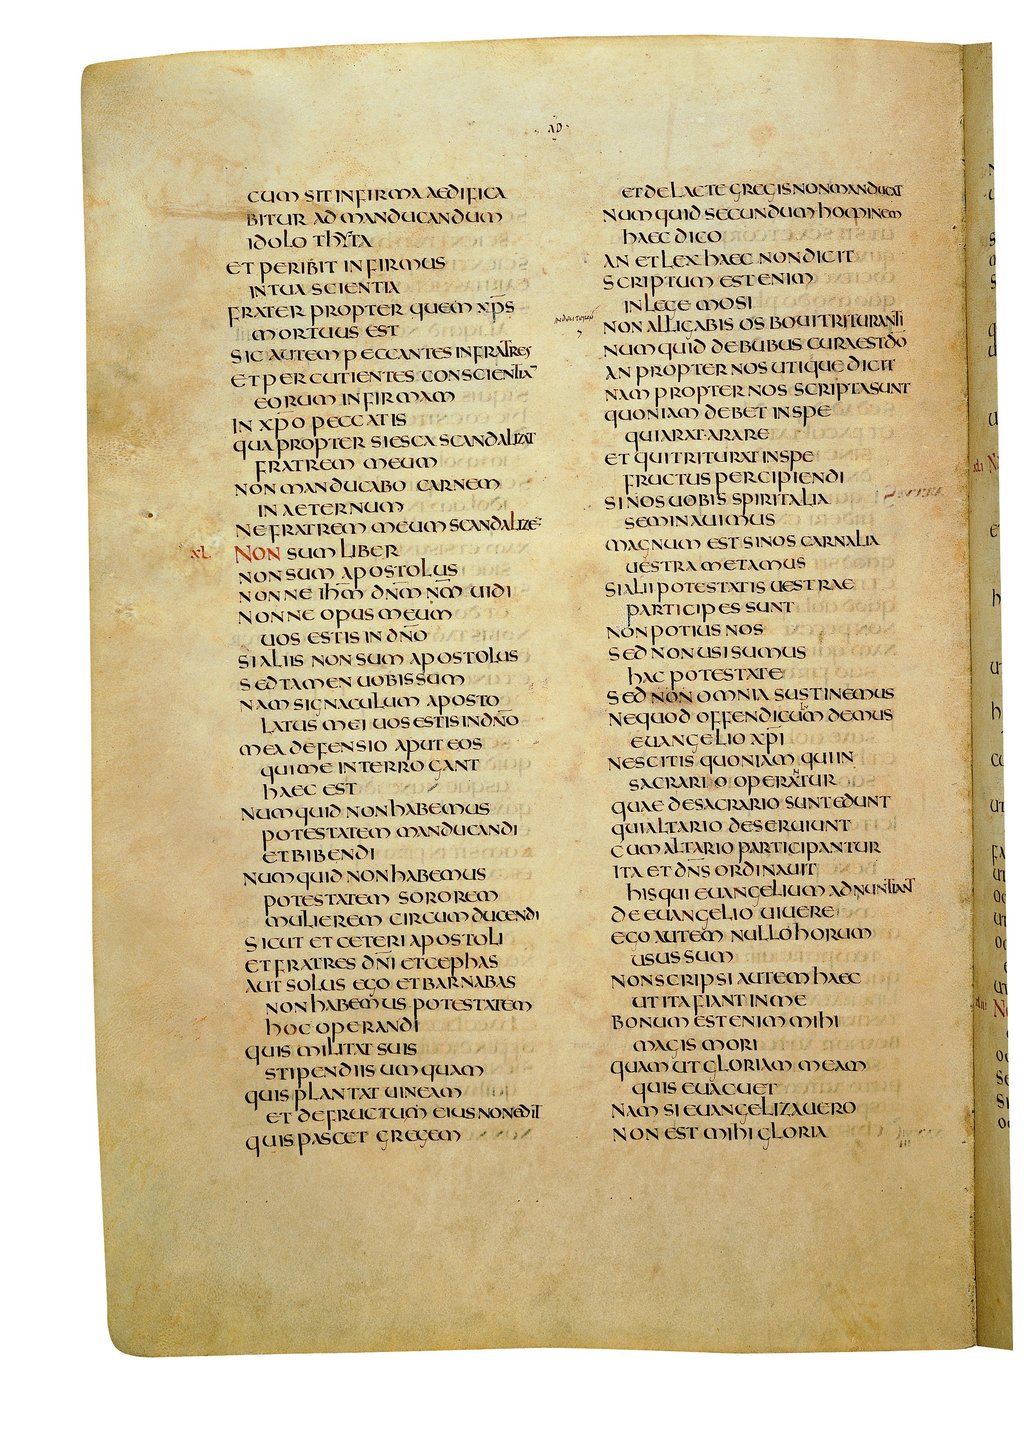 AD
CUM SIT INFIRMA AEDIFICA
BITUR AD MANDUCANDUM
IDOLOTHYTA
ET PERIBIT INFIRMUS
IN TUA SCIENTIA
FRATER PROPTER QUEM XP̄S
MORTUUS EST
SIC AUTEM PECCANTES IN FRATRES
ET PERCUTIENTES CONSCIENTIĀ
EORUM INFIRMAM
IN XP̄O PECCATIS
QUAPROPTER SI ESCA SCANDALIZAT
FRATREM MEUM
NON MANDUCABO CARNEM
IN AETERNUM
NE FRATREM MEUM SCANDALIZĒ
XL NON SUM LIBER
NON SUM APOSTOLUS
NONNE IHM̄ DNM̄ NM̄ UIDI
NONNE OPUS MEUM
UOS ESTIS IN DN̄O
SI ALIIS NON SUM APOSTOLUS
SED TAMEN UOBIS SUM
NAM SIGNACULUM APOSTO
LATUS MEI UOS ESTIS IN DN̄O
MEA DEFENSIO APUT EOS
QUI ME INTERROGANT
HAEC EST
NUMQUID NON HABEMUS
POTESTATEM MANDUCANDI
ET BIBENDI
NUMQUID NON HABEMUS
POTESTATEM SOROREM
MULIEREM CIRCUMDUCENDI
SICUT ET CETERI APOSTOLI
ET FRATRES DN̄I ET CEPHAS
AUT SOLUS EGO ET BARNABAS
NON HABEMUS POTESTATEM
HOC OPERANDI
QUIS MILITAT SUIS
STIPENDIIS UMQUAM
QUIS PLANTAT UINEAM
ET DE FRUCTUM EIUS NON EDIT
QUIS PASCET GREGEM
ET DE LACTE GREGIS NON MANDUCAT
NUMQUID SECUNDUM HOMINEM
HAEC DICO
AN ET LEX HAEC NON DICIT
SCRIPTUM EST ENIM
IN LEGE MOSI
NON ALLIGABIS OS BOUI TRITURANTI
NUMQUID DE BUBUS CURA EST DŌ
AN PROPTER NOS UTIQUE DICIT
NAM PROPTER NOS SCRIPTA SUNT
QUONIAM DEBET IN SPE
QUI ARAT ARARE
ET QUI TRITURAT IN SPE
FRUCTUS PERCIPIENDI
SI NOS UOBIS SPIRITALIA
SEMINAUIMUS
MAGNUM EST SI NOS CARNALIA
UESTRA METAMUS
SI ALII POTESTATIS UESTRAE
PARTICIPES SUNT
NON POTIUS NOS
SED NON USI SUMUS
HAC POTESTATE
SED NON OMNIA SUSTINEMUS
NE QUOD OFFENDICULUM DEMUS
EUANGELIO XP̄I
NESCITIS QUONIAM QUI IN
SACRARIO OPERATUR
QUAE DE SACRARIO SUNT EDUNT
QUI ALTARIO DESERUIUNT
CUM ALTARIO PARTICIPANTUR
ITA ET DN̄S ORDINAUIT
HIS QUI EUANGELIUM ADNUNTIANT
DE EUANGELIO UIUERE
EGO AUTEM NULLO HORUM
USUS SUM
NON SCRIPSI AUTEM HAEC
UT ITA FIANT IN ME
BONUM EST ENIM MIHI
MAGIS MORI
QUAM UT GLORIAM MEAM
QUIS EUACUET
NAM SI EUANGELIZAUERO
NON EST MIHI GLORIA